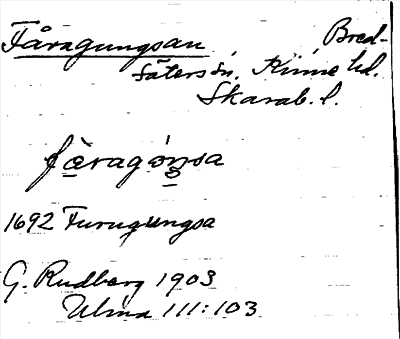 Fåragungsan Bred-
säters sn. Kinne hd.
Skarab. l.
fàragónsa
1692 Furugungsa
G. Rudberg 1903
Ulma 111:103